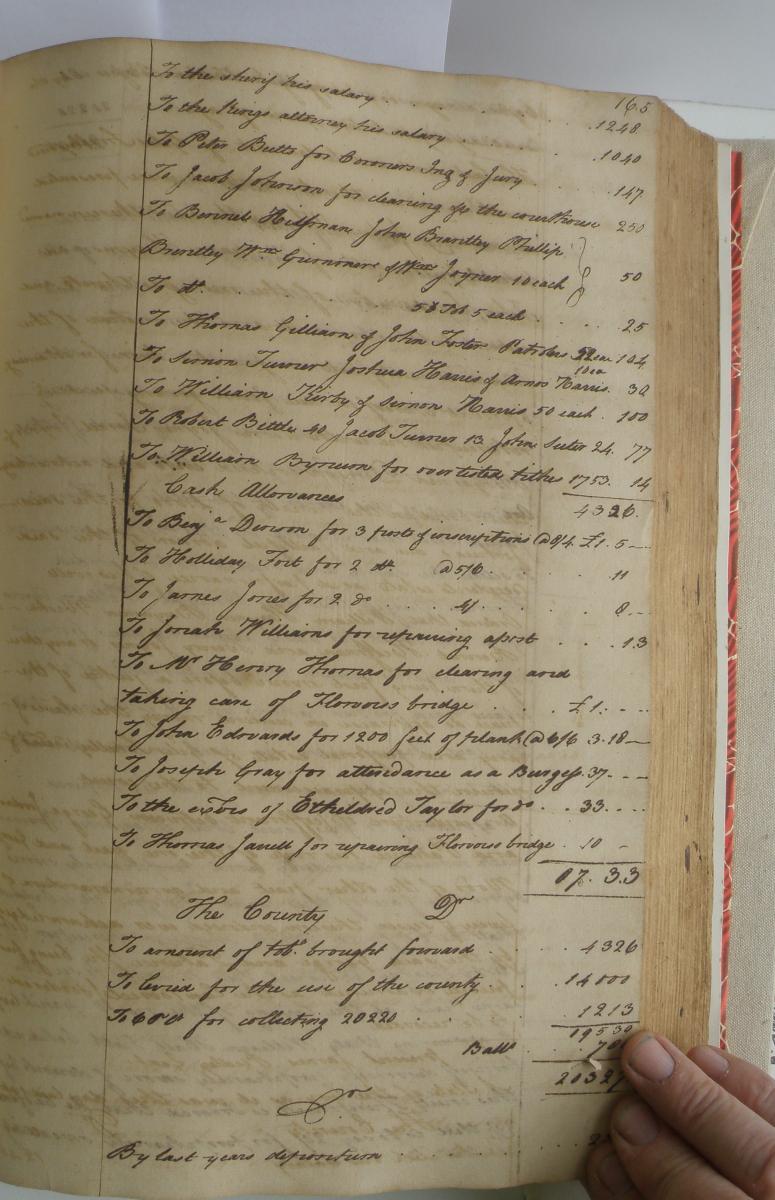 165
To the sherif his salary . . . . 1248
To the Kings attorney his salary . . . 1040
To Peter Butts for Coroners Inq & Jury . . 147
To Jacob Johnson for clearing &c the courthouse 250
To Bennet John Brantley Phillip
Brantley Wm. & Wm. Joyner 10 each 50
To do. . . . . 5 each . . . 25
To Thomas Gilliam & John Foster Patrolers 52 ea 104
To Simon Turner Joshua Harris & Amos Harris 10 ea 30
To William Kirby & Simon Harris 50 each . 100
To Robert Bittle 40 Jacob Turner 13 John Suter 24. 77
To William Bynum for overlisted tithe 1753. 14
Cash Allowances 4326.
To Benja. for 3 posts & inscriptions @ 8/4. £1. 5 —
To Holliday Fort for 2 do. @ 5/6 . . . 11
To James Jones for 2 do . . . 4/ . . . 8 . -
To Josiah Williams for repairing a post . . . . 13
To Mr Henry Thomas for clearing and
taking care of bridge . . . £1. - - -
To John Edwards for 1200 feet of plank @ 6/6 3.18 —
To Joseph Gray for attendance as a Burgess. 37. - - -
To the of Etheldred Taylor for do . . 33. - - -
To Thomas for repairing bridge . 10 -
The County Dr
To amount of tobo. brought forward . . . 4326
To levied for the use of the county . . 14000
To for collecting 20220 . . . . 1213
19539
Balla
Cr
By last years depositum . . . . .